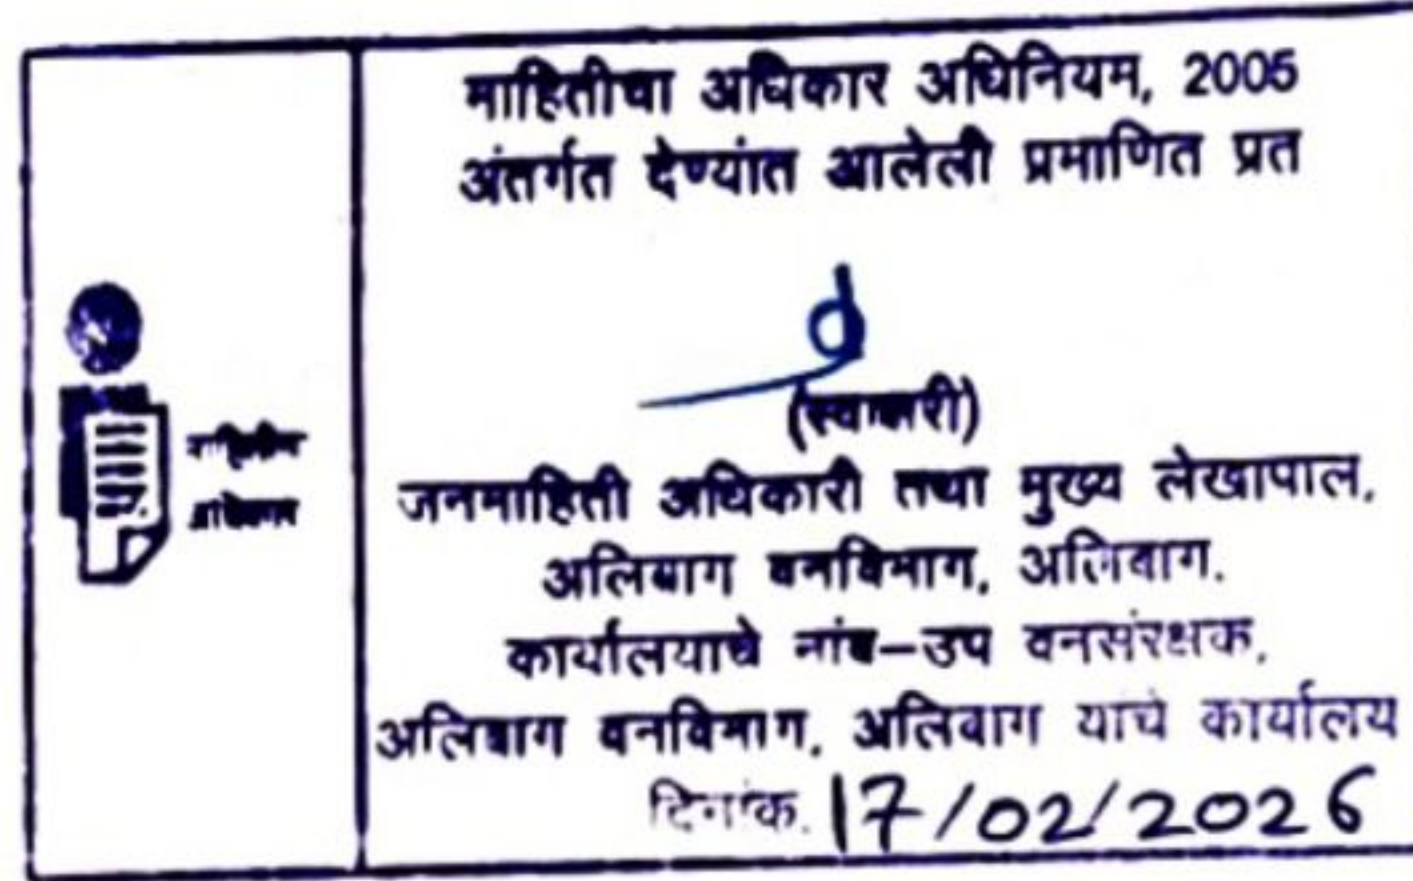 माहितीचा अधिकार अधिनियम, 2005
अंतर्गत देण्यांत आलेली प्रमाणित प्रत
(स्वाक्षरी)
जनमाहिती अधिकारी तथा मुख्य लेखापाल,
अलिबाग वनविभाग, अलिबाग.
कार्यालयाचे नांव-उप वनसंरक्षक,
अलिबाग वनविभाग, अलिबाग यांचे कार्यालय
दिनांक. 17/02/2026